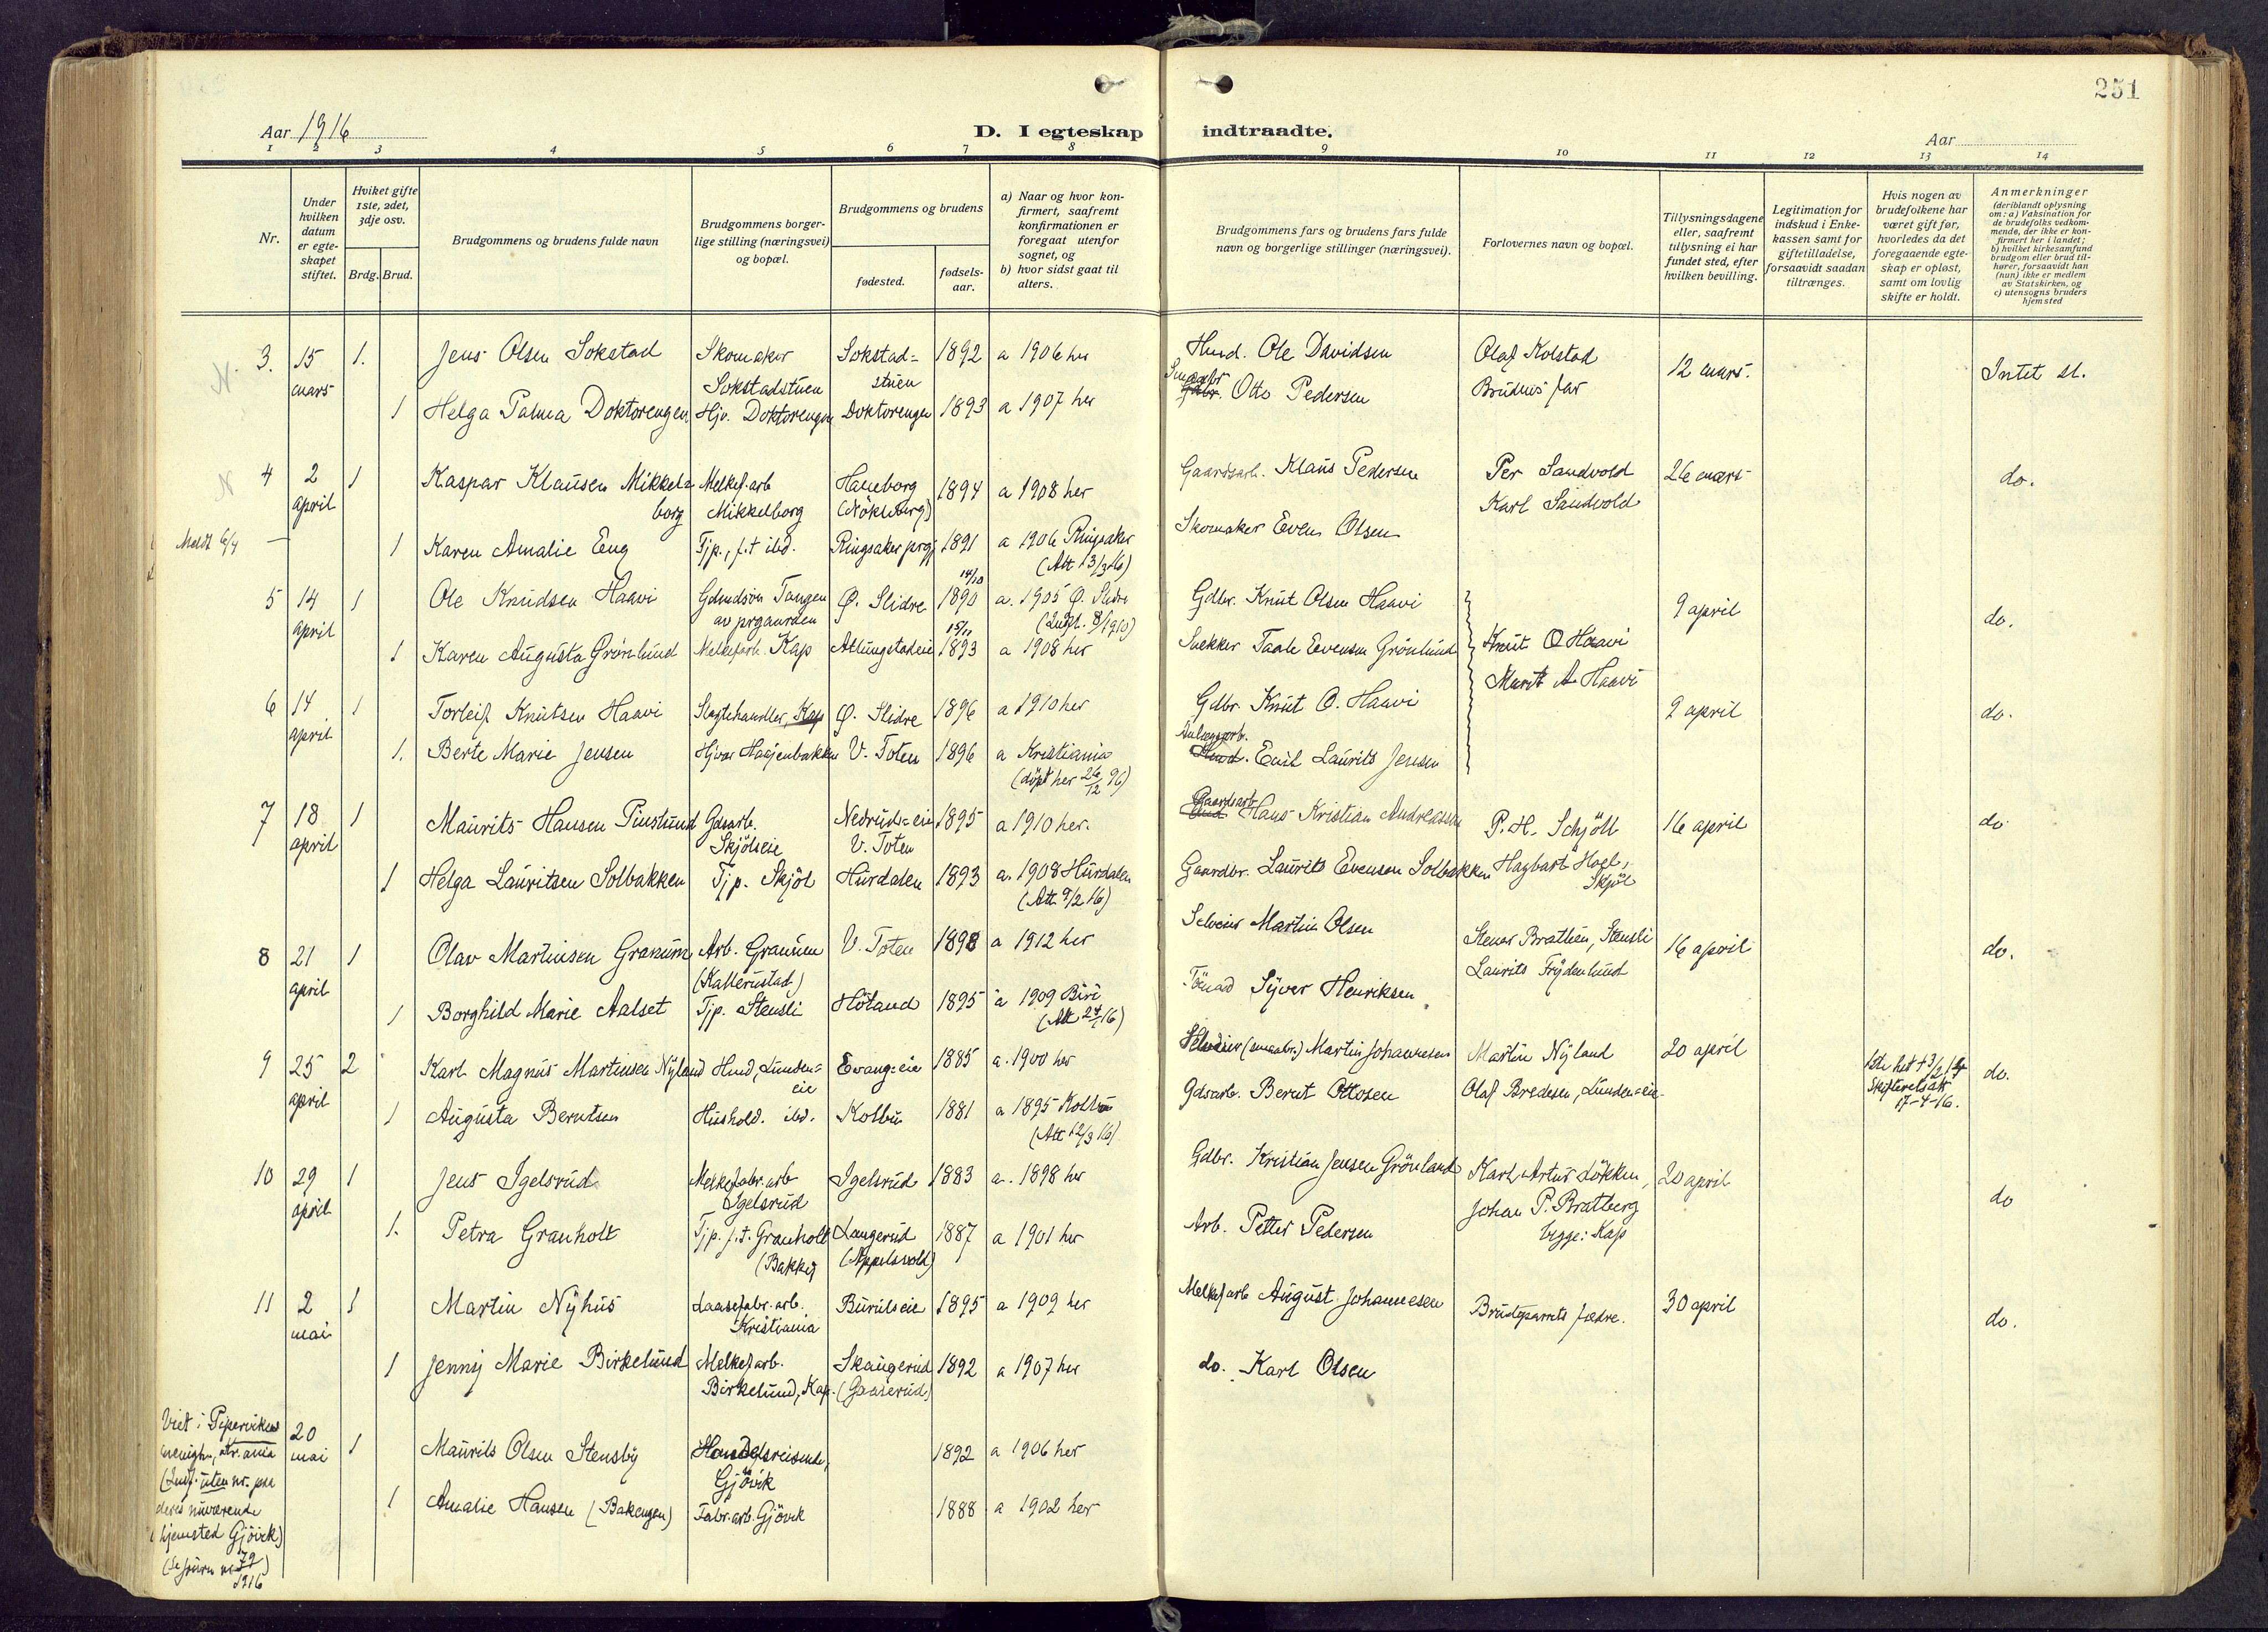 251
Aar 1916
D. I egteskap indtraadte.
Aar
1 2 3 4 5 6 7 8 9 10 11 12 13 14
Nr.
Under hvilken datum er egteskapet stiftet.
Hviket gifte 1ste, 2det, 3dje osv.
Brdg. Brud.
Brudgommens og brudens fulde navn
Brudgommens borgerlige stilling (næringsvei) og bopæl.
Brudgommens og brudens
fødested.
fødselsaar.
a) Naar og hvor konfirmert, saafremt konfirmationen er foregaat utenfor sognet, og
b) hvor sidst gaat til alters.
Brudgommens fars og brudens fars fulde navn og borgerlige stillinger (næringsvei).
Forlovernes navn og bopæl.
Tillysningsdagene eller, saafremt tillysning ei har fundet sted, efter hvilken bevilling.
Legitimation for indskud i Enkekassen samt for giftetilladelse, forsaavidt saadan tiltrænges.
Hvis nogen av brudefolkene har været gift før, hvorledes da det foregaaende egteskap er opløst, samt om lovlig skifte er holdt.
Anmerkninger
(deriblandt oplysning om: a) Vaksination for de brudefolks vedkommende, der ikke er konfirmert her i landet; b) hvilket kirkesamfund brudgom eller brud tilhører, forsaavidt han (hun) ikke er medlem av Statskirken, og c) utensogns bruders hjemsted
3. 15 mars 1. Jens Olsen Sokstad Skomaker Sokstadstuen Sokstad=stuen 1892 a 1906 her Hmd. Ole Davidsen Olaf Kolstad 12 mars. Intet sl.
1 Helga Palma Doktorengen Hjv. Doktorengen Doktorengen 1893 a 1907 her Otto Pedersen Brudens far
4 2 april 1 Kaspar Klausen Mikkelborg Melkef.arb Mikkelborg 1894 a 1908 her Gaardsarb. Klaus Pedersen Per Sandvold 26 mars do.
Karl Sandvold
Meldt 6/4 1 Karen Amalie Eng Tjp., f.t ibd. Ringsaker prgj 1891 a 1906 Ringsaker Skomaker Even Olsen
(Att 13/3 16)
5 14 april 1 Ole Knudsen Haavi Gdmdsøn Tangen av prgaarden Ø. Slidre 14/10 1890 a. 1905 Ø. Slidre Gdbr. Knut Olsen Haavi 9 april do.
1 Karen Augusta Grønlund Melkefarb. Kap Atlungstadeie 15/11 1893 a 1908 her Snekker Taale Evensen Grönlund Knut O Haavi
Marit A. Haavi
6 14 april 1 Torleif Knutsen Haavi Slagtehandler, Kap Ø. Slidre 1896 a 1910 her Gdbr. Knut O. Haavi 9 april do.
1. Berte Marie Jensen V. Toten 1896 a Kristiania Emil Laurits Jensen
(døpt her 26/12 96)
7 18 april 1 Maurits Hansen Gdsarb. Skjölseie Nedrud=eie V. Toten 1895 a 1910 her. Gaardsarb. Hans Kristian Andreassen P. H. Schjöll 16 april do
1 Helga Lauritsen Solbakken Tjp. Skjöl Hurdalen 1893 a. 1908 Hurdalen Gaardbr. Laurits Evensen Solbakken Hagbart Hoel, Skjöl
(Att 9/2 16)
8 21 april 1 Olav Martinsen Granum Arb. Granum (Kallerustad) V. Toten 1898 a 1912 her Selveier Martin Olsen Stener Bratlien, Stensli 16 april do.
Laurits Frydenlund
1 Borghild Marie Aalset Tjp. Stensli Hötand 1895 a 1909 Biri Syver Henriksen
9 25 april 2 Karl Magnus Martinsen Nyland Hmd, Lunden=eie Evang=eie 1885 a. 1900 her Martin Johannesen Martin Nyland 20 april do.
Skifteretsatt. 17-4-16.
1 Augusta Berntsen Hushold. ibd. Kolbu 1881 a 1895 Kolbu Gdsarb. Bernt Ottosen Olaf Bredesen, Lunden=eie
(Att 12/3 16)
10 29 april 1 Jens Igelsrud Melkefabr.arb Igelsrud Igelsrud 1883 a. 1898 her Gdbr. Kristian Jensen Grönland Karl Artur Lökken, 20 april do
Johan P. Bratberg
begge: Kap
1. Petra Granholt Tjp. f.t. Granholt (Bakke) Langerud (Appelsvold) 1887 a 1901 her Arb. Petter Pedersen
11 2 mai 1 Martin Nyhus Laasefabr. arb. Kristiania Burulseie 1895 a 1909 her Melkef arb August Johannesen Brudeparrets fædre. 30 april do.
1 Jenny Marie Birkelund Melkef arb. Birkelund, Kap. Skaugerud (Gaaserud) 1892 a 1907 her do. Karl Olsen
Viet i Pipervikens menigh,
(Indf. uten nr. paa
deres nuværende
hjemsted Gjövik)
20 mai 1 Maurits Olsen Stensby Handelsreisende, Gjövik 1892 a 1906 her
1 Amalie Hansen (Bakengen) Fabr.arb. Gjövik 1888 a 1902 her
1916